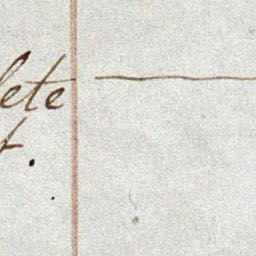 lete
t.